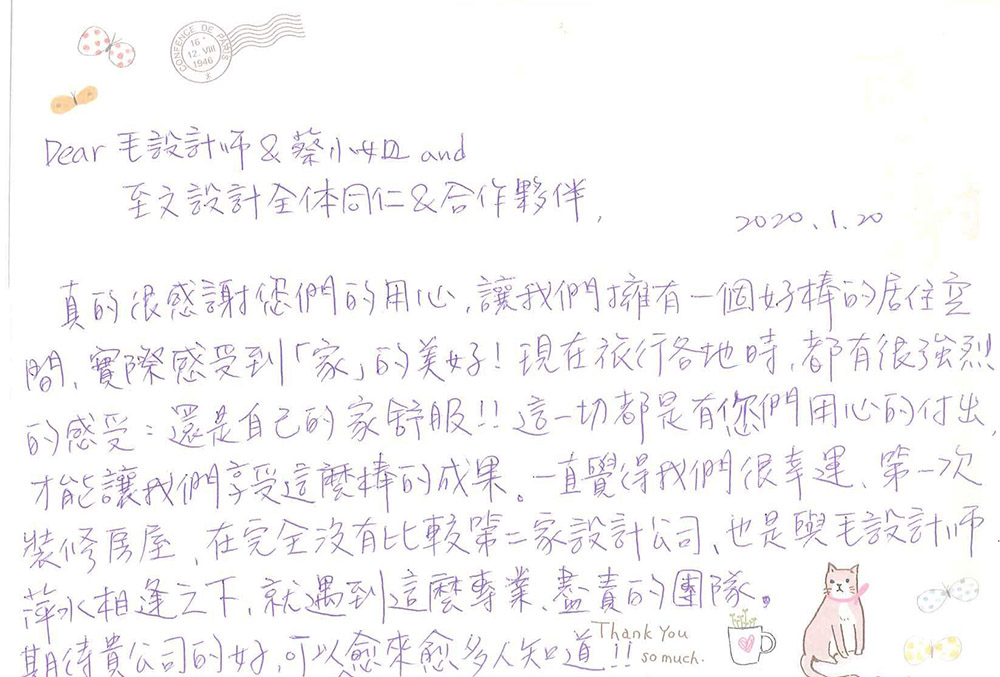 CONFENCE DE PARIS
16
12. VIII
1946
Dear 毛設計師 & 蔡小姐 and
至文設計全体同仁 & 合作夥伴,
2020.1.20
真的很感謝您們的用心,讓我們擁有一個好棒的居住空
間,實際感受到「家」的美好!現在旅行各地時,都有很強烈
的感受:還是自己的家舒服!!這一切都是有您們用心的付出,
才能讓我們享受這麼棒的成果。一直覺得我們很幸運、第一次
裝修房屋,在完全沒有比較第二家設計公司、也是與毛設計師
萍水相逢之下,就遇到這麼專業、盡責的團隊。
期待貴公司的好,可以愈來愈多人知道!!
Thank You
so much.